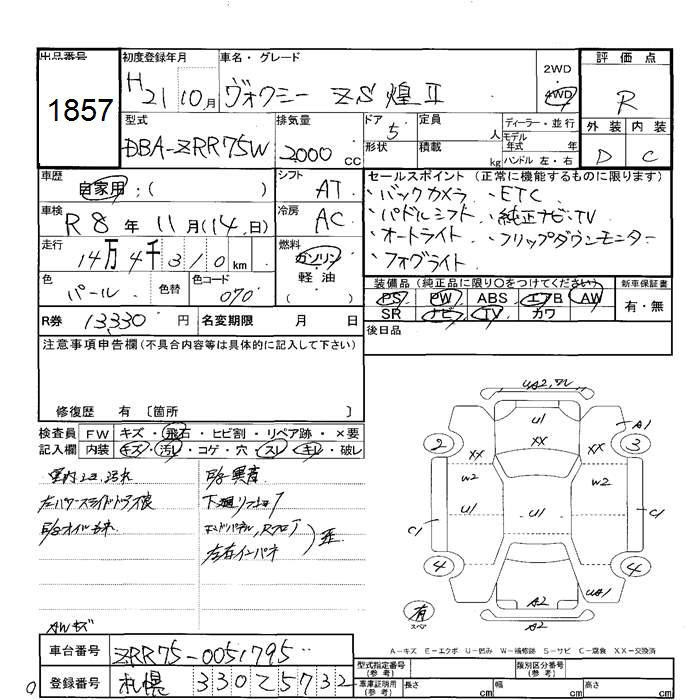 出品番号
1857
初度登録年月
H21 10月
車名・グレード
ヴォクシー ZS 煌Ⅱ
2WD
4WD
評価点
R
外装 内装
D C
型式
DBA-ZRR75W
排気量
2000 cc
ドア 5
形状
定員 人
積載 kg
ディーラー・並行
モデル年式 年式
ハンドル 左・右
車歴
自家用:( )
シフト
AT
車検
R 8 年 11 月 (14 日)
冷房
AC
走行
14万4千310 km
燃料
ガソリン
軽油
( )
色
パール
色替
色コード
070
R券 13330 円
名変期限 月 日
セールスポイント (正常に機能するものに限ります)
・バックカメラ ・ETC
・パドルシフト ・純正ナビ・TV
・オートライト ・フリップダウンモニター
・フォグライト
装備品(純正品に限り○をつけてください)
新車保証書
PS PW ABS エアB AW
有・無
SR ナビ TV カワ
後日品
注意事項申告欄(不具合内容等は具体的に記入して下さい)
修復歴 有 〔箇所 〕
検査員 FW キズ・飛石・ヒビ割・リペア跡・×要
記入欄 内装 キズ・汚レ・コゲ・穴・スレ・キレ・破レ
E/G異音
AWキズ
UA2,
U1
XX
XX XX
A1
2 3
W2 W2
U1 U1
C1 C1
4 4
A2 UA1
A2
有
スペア
A-キズ E-エクボ U-凹み W-補修跡 S-サビ C-腐食 XX-交換済
車台番号 ZRR75-0051795
登録番号 札幌 330 Z 5732
型式指定番号(参考)
類別区分番号(参考)
車庫証明用(参考)
長さ cm 幅 cm 高さ cm